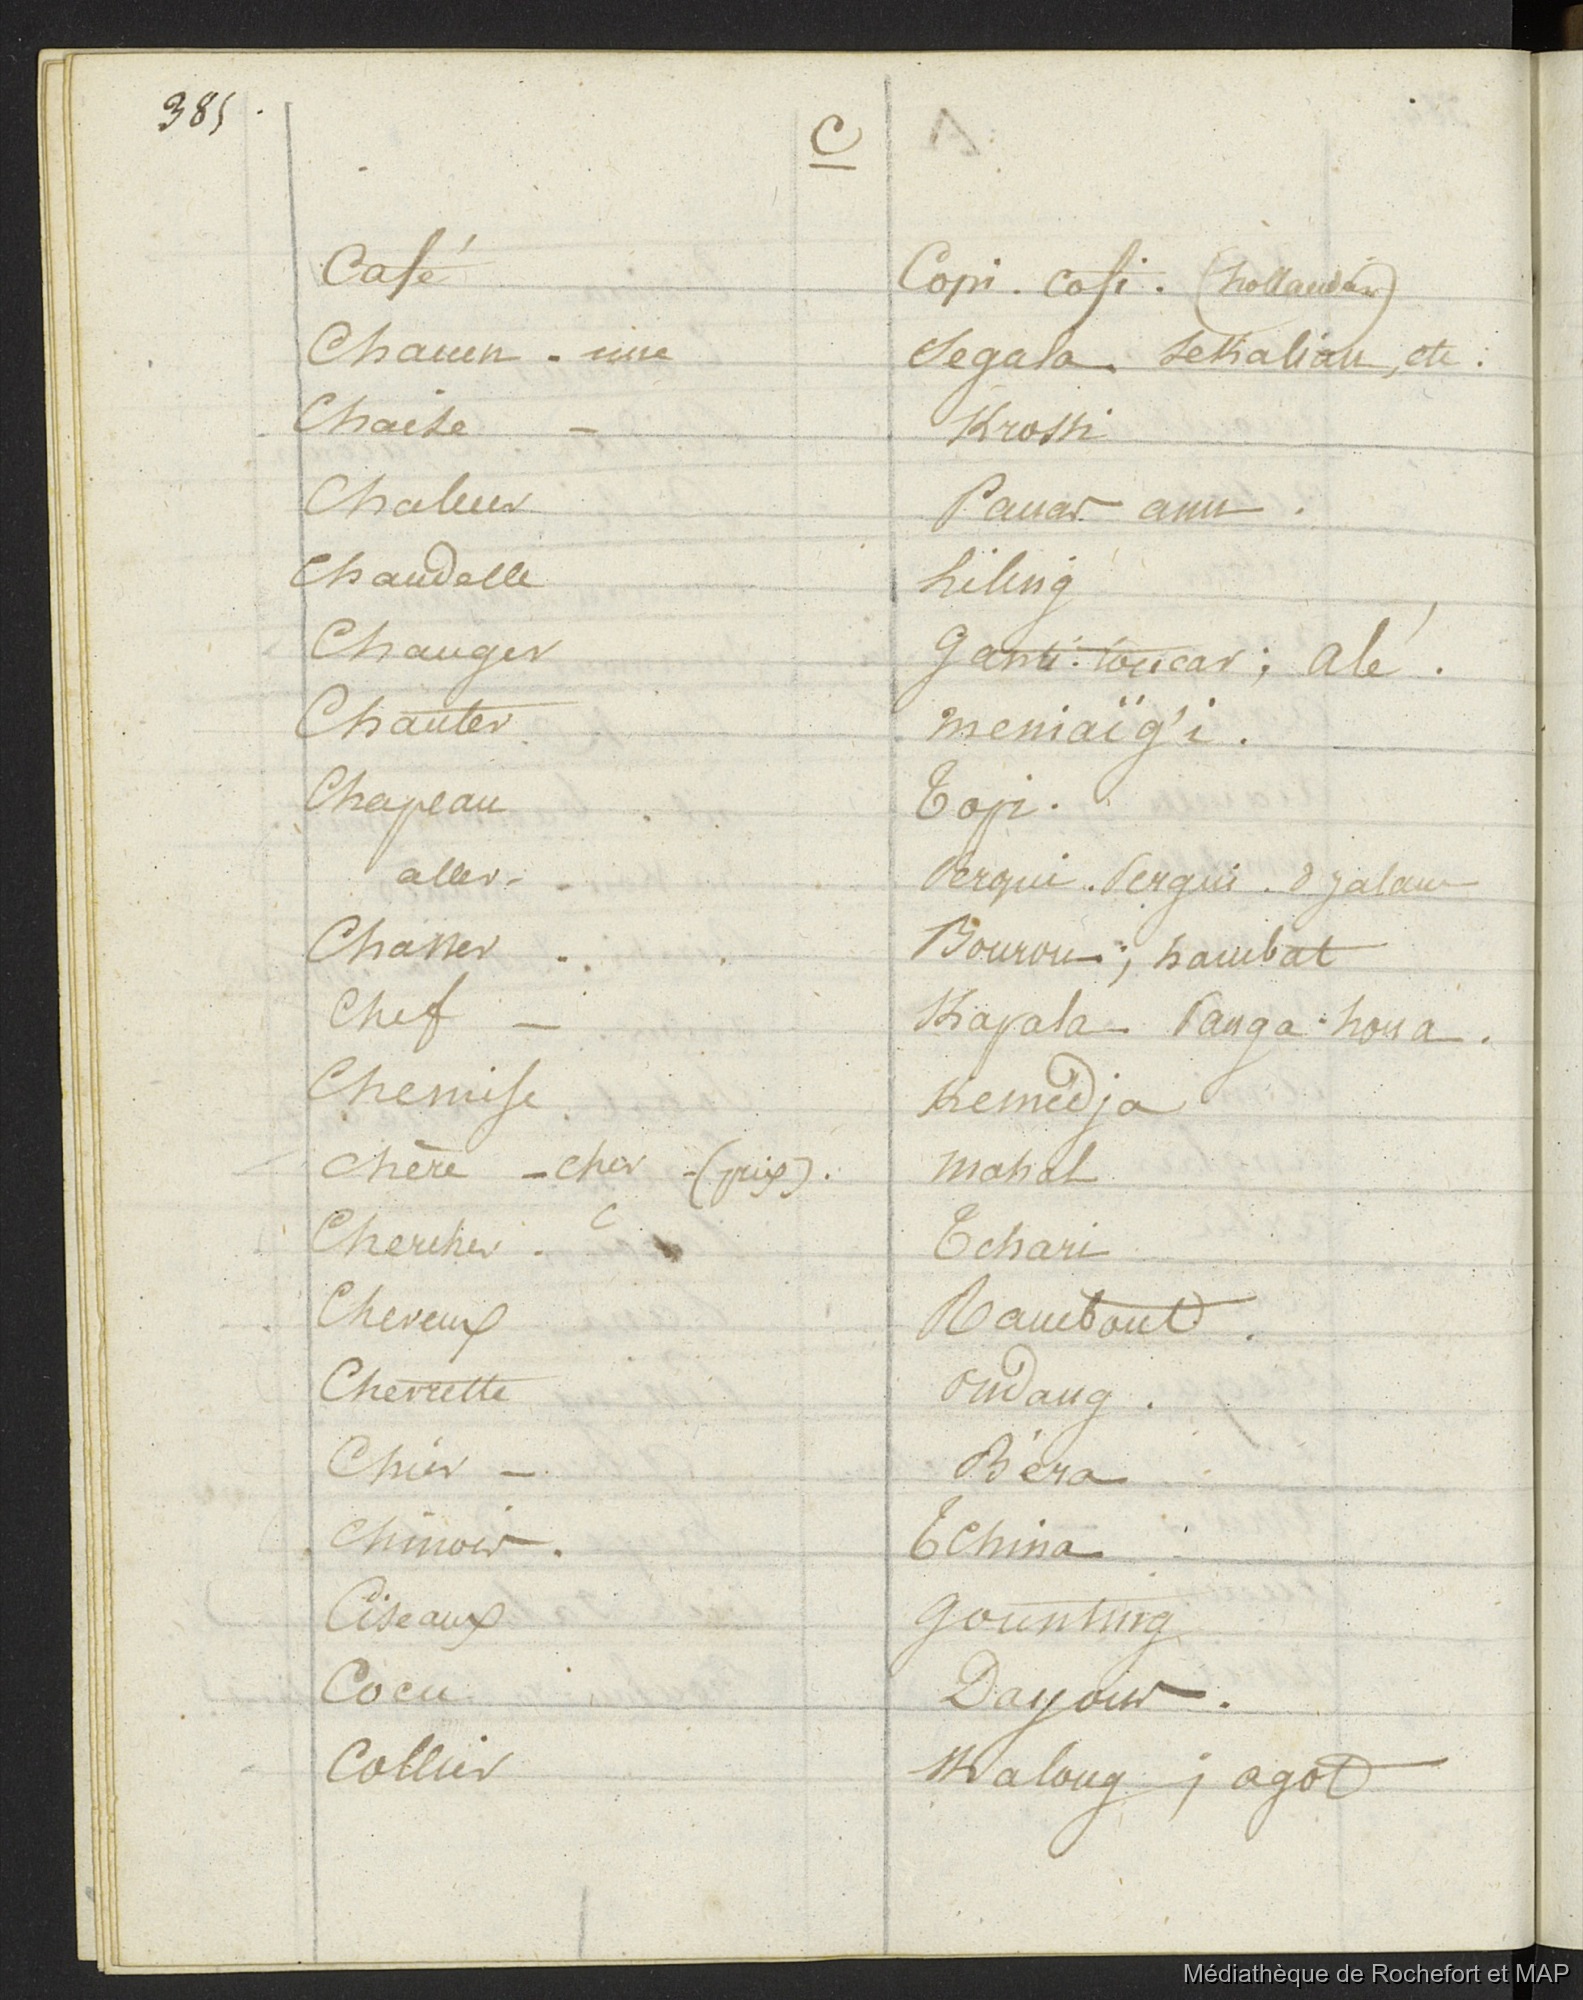 385.
C
Café Copi. cofi. (hollandais)
Chacun. une Segala. Sekalian, etc.
Chaise - Krossi
Chaleur Panas ann.
Chandelle liling
Changer Ganti. toucar; alé.
Chanter meniaïg'i.
Chapeau Topi.
aller. Perqui. Pergui. djalan
Chasser. Bourou; hambat
Chef - Kapala Panga houa.
Chemise Kemèdja
Chère - cher - (prix). Mahal
Chercher. Tchari
Cheveux Rambout.
Chevrette oudang.
Chier - Béra
Chinois. Tchina
Ciseaux Gounting
Cocu Dayous.
Collier Kaloug; agot
Médiathèque de Rochefort et MAP